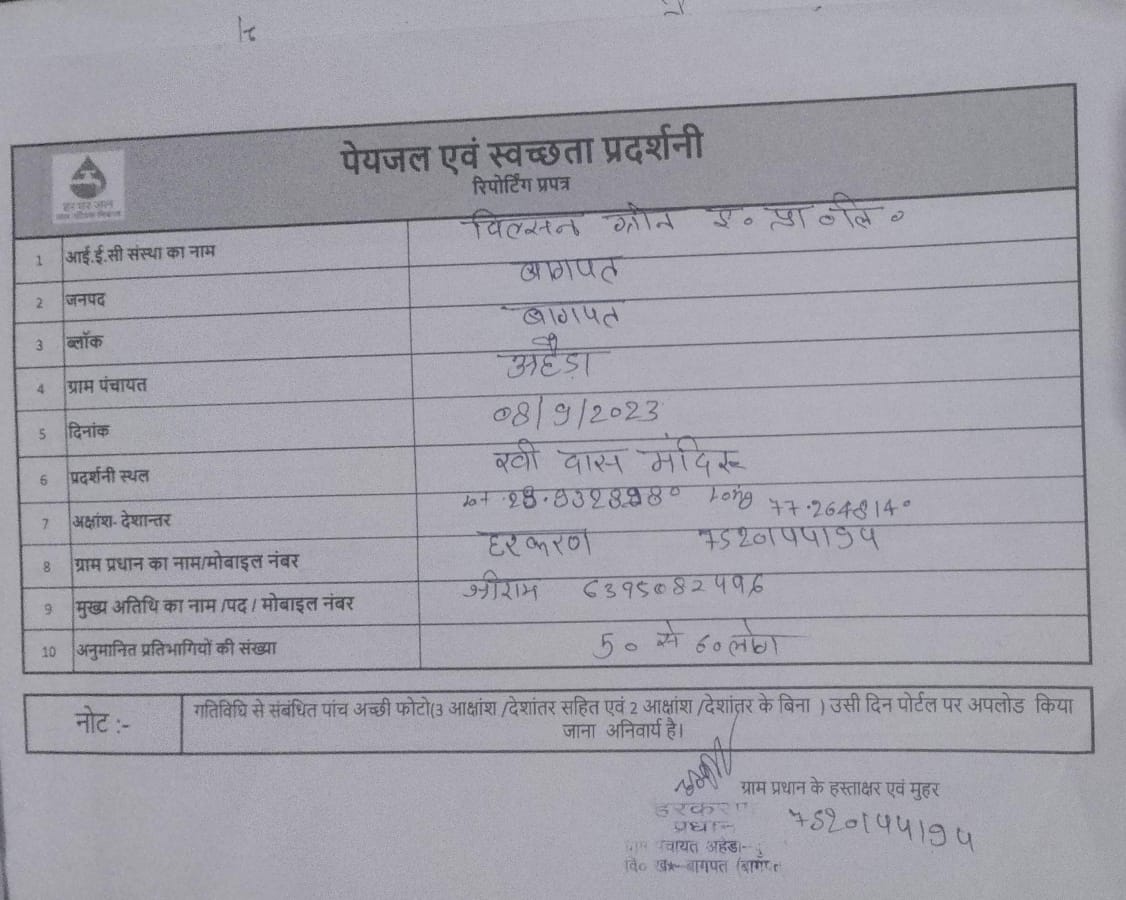 हर घर जल
पेयजल एवं स्वच्छता प्रदर्शनी
रिपोर्टिंग प्रपत्र
1 आई.ई.सी संस्था का नाम विल्सन ग्रीन इ० प्रा० लि०
2 जनपद बागपत
3 ब्लॉक बागपत
4 ग्राम पंचायत अहैड़ा
5 दिनांक 08/9/2023
6 प्रदर्शनी स्थल रवी दास मंदिर
7 अक्षांश- देशान्तर Long 77.264814°
8 ग्राम प्रधान का नाम/मोबाइल नंबर हरकरण
9 मुख्य अतिथि का नाम /पद / मोबाइल नंबर श्रीराम 6395082496
10 अनुमानित प्रतिभागियों की संख्या 50 से 60 लोग
नोट :- गतिविधि से संबंधित पांच अच्छी फोटो(3 आक्षांश /देशांतर सहित एवं 2 आक्षांश /देशांतर के बिना ) उसी दिन पोर्टल पर अपलोड किया
जाना अनिवार्य है।
ग्राम प्रधान के हस्ताक्षर एवं मुहर
हरकरण
प्रधान
ग्राम पंचायत अहेडा
वि० ख०-बागपत (बागपत